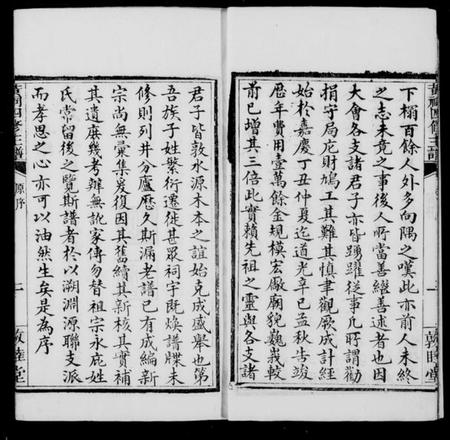 下榻百餘人外多向隅之嘆此亦前人未終
之志未竟之事後人所當善繼善述者也因
大會各支諸君子亦皆踴躍從事凡所謂勸
捐守局庀財鳩工其難其慎聿觀厥成計經
始於嘉慶丁丑仲夏迄道光辛巳孟秋告竣
歷年費用壹萬餘金規模宏敞廟貌巍峩較
前已增其三倍此實賴先祖之靈與各支諸
敦睦堂
君子皆敦水源木本之誼始克成盛舉也第
吾族子姓繁衍遷徙甚眾祠宇既煥譜牒未
修則列井分廬歷久斯漏老譜已有成編新
宗尚無彙集爰復因其舊續其新核其實補
其遺庶幾考辦無訛家傳勿替祖宗永庇姓
氏常留後之覽斯譜者於以溯淵源聯支派
而孝思之心亦可以油然生矣是為序
四修主譜
原序
二
敦睦堂